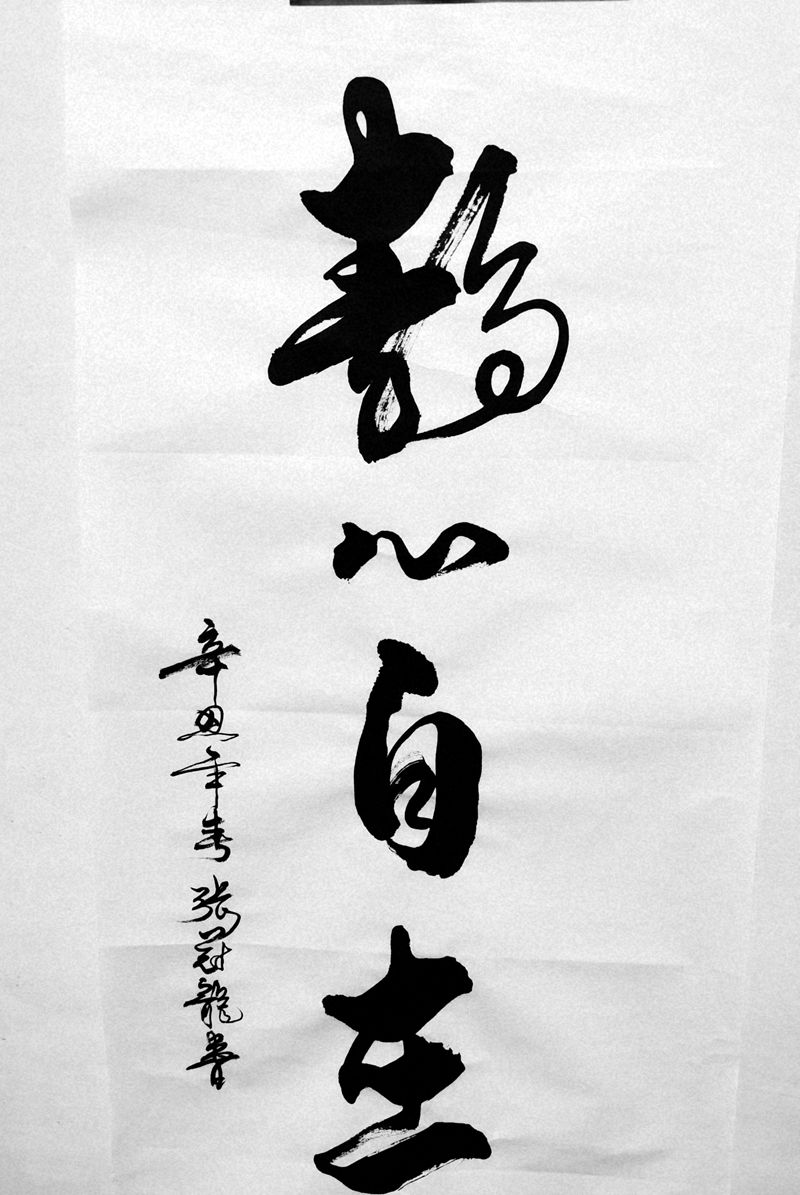 静心自在
辛丑年春张冠龍書